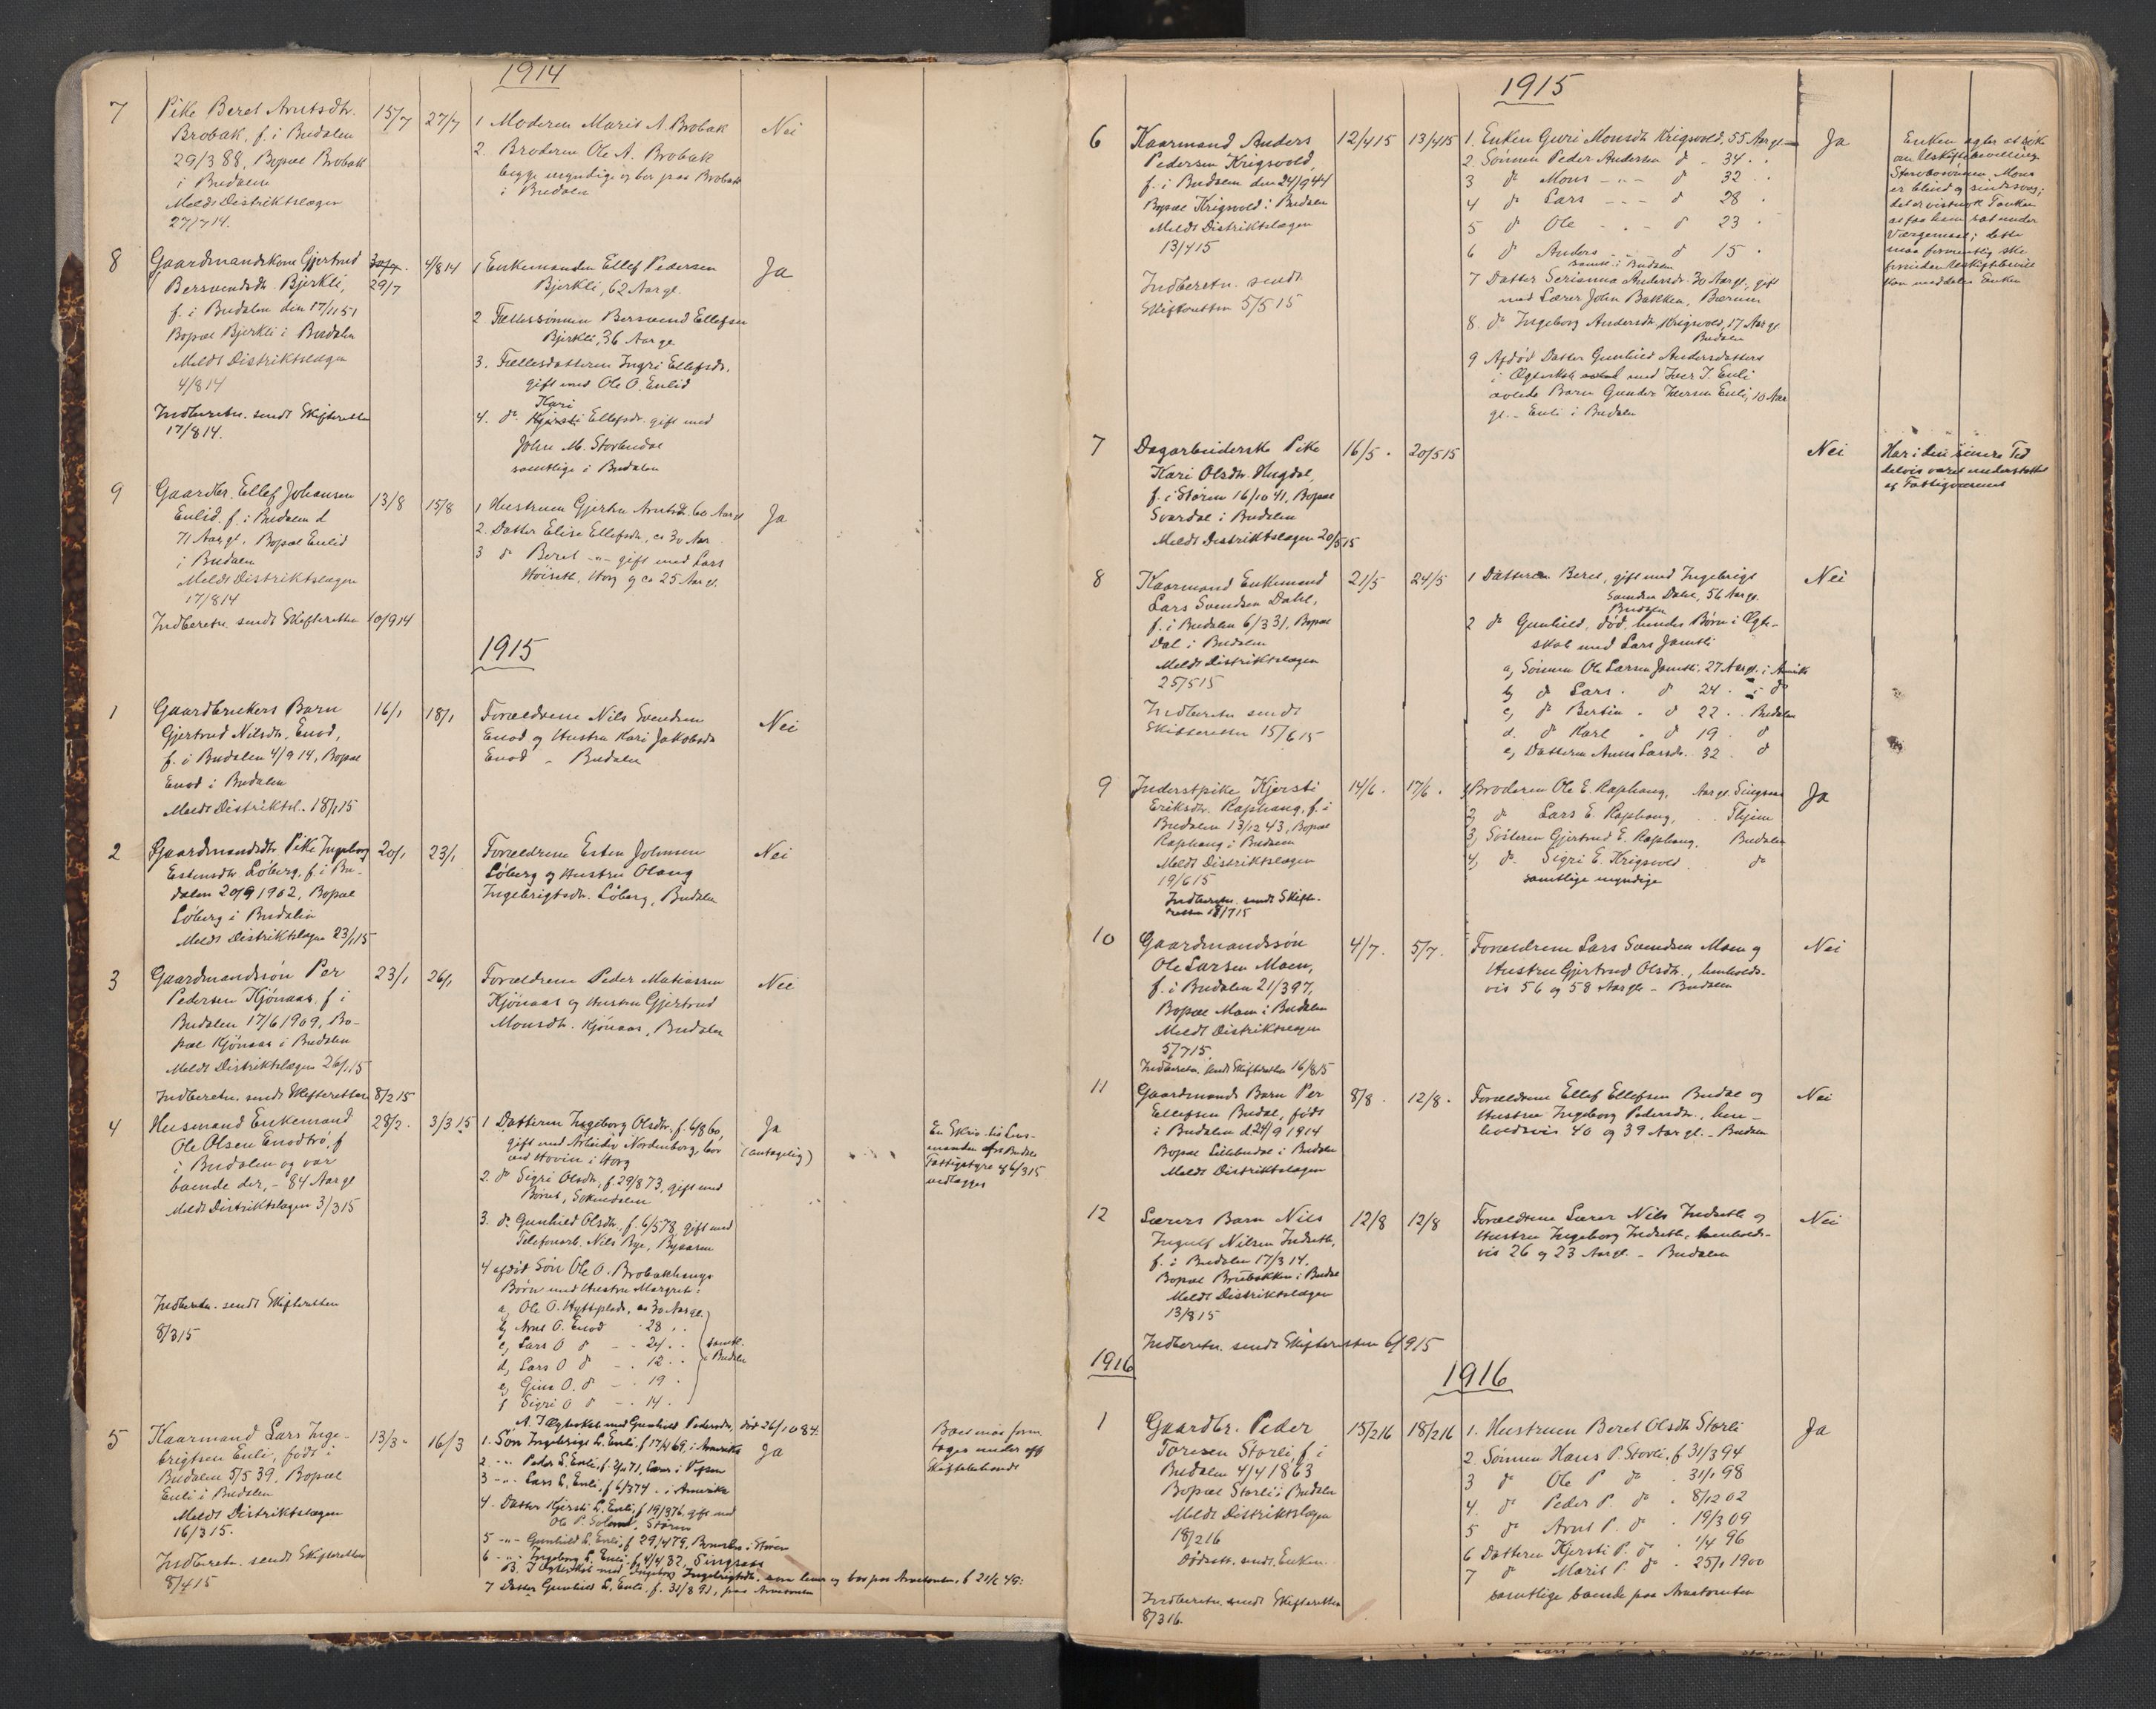 1914
7
Pike Beret Arntsdtr.
Brobak, f. i Budalen
29/3 88, Bopæl Brobak
i Budalen
Meldt Distriktslægen
27/7 14.
15/7
27/7
1 Moderen Marit A. Brobak
2. Broderen Ole A. Brobak
begge myndige og bor paa Brobak
i Budalen
Nei
8
Gaardmandskone Gjertrud
Bersvendsdtr. Bjerkli,
f. i Budalen den 17/11 51
Bopæl Bjerkli i Budalen
Meldt Distriktslægen
4/8 14
Indberetn. sendt Skifteretten
17/8 14.
29/7
4/8 14
1 Enkemanden Ellef Pedersen
Bjerkli, 62 Aar gl.
2. Fællessønnen Bersvend Ellefsen
Bjerkli, 36 Aar gl
3. Fællesdatteren Ingri Ellefsdr.
gift med Ole O. Enlid
Kari
4. do Kjersti Ellefsdr. gift med
John M. Storbudal
samtlige i Budalen
Ja
9
Gaardbr. Ellef Johansen
Enlid, f. i Budalen d
71 Aar gl. Bopæl Enlid
i Budalen
Meldt Distriktslægen
17/8 14
Indberetn. sendt Skifteretten 10/9 14
13/8
15/8
1 Hustruen Gjertru Arntsdt. 60 Aar gl
2. Datter Elise Ellefsdr, ca 30 Aar
3 do Beret -"- gift med Lars
Høiseth, Horg og ca 25 Aar gl.
Ja
1915
1
Gaardbrukers Barn
Gjertrud Nilsdtr. Enod,
f. i Budalen 4/9 14, Bopæl
Enod i Budalen
Meldt Distriktsl. 18/1 15
16/1
18/1
Forældrene Nils Svendsen
Enod og Hustru Kari Jakobsdr
Enod - Budalen
Nei
2
Gaardmandsdtr. Pike Ingeborg
Estensdtr. Løberg, f. i Bu-
dalen 20/9 1902, Bopæl
Løberg i Budalen
Meldt Distriktslægen 23/1 15
20/1
23/1
Forældrene Esten Johnsen
Løberg og Hustru Olaug
Ingebrigtsdr. Løberg, Budalen
Nei
3
Gaardmandssøn Per
Pedersen Kjønaas, f. i
Budalen 17/6 1909, Bo-
pæl Kjønaas i Budalen
Meldt Distriktslægen 26/1 15
Indberetn. sendt Skifteretten 8/2 15
23/1
26/1
Forældrene Peder Matiassen
Kjønaas og Hustru Gjertrud
Monsdtr. Kjønaas, Budalen
Nei
4
Husmand Enkemand
Ole Olsen Enodtrø, f
i Budalen og var
boende der, - 84 Aar gl
Meldt Distriktslægen 3/3 15
Indberetn. sendt Skifteretten
8/3 15
28/2.
3/3 15
1 Datteren Ingeborg Olsdtr. f. 6/8 60,
gift med Arbeider Nordenborg, bor
ved Hovin i Horg
2. do Sigri Olsdr, f. 29/8 73, gift med
Bønet, Soknedalen
3. do Gunhild Olsdr, f. 6/5 78, gift med
Telefonarb. Nils Bye, Byaasen
4 afdød Søn Ole O. Brobakhaugs
Børn med Hustru Margrete:
a, Ole O. Hytteplads, ca 30 Aar gl.
b, Arnt O. Enod - 28 "
c, Lars O do - 24 "
d, Lars O do - 12 "
e, Gina O. do - 19 "
f Sigri O do - 14 "
samtl.
i Budalen
Ja
(antagelig)
En Skriv. fra Lens-
manden Budals
Fattigstyre af 6/3 15
vedlægges
5
Kaarmand Lars Inge-
brigtsen Enli, født i
Budalen 5/5 39, Bopæl
Enli i Budalen
Meldt Distriktslægen
16/3 15.
Indberetn. sendt Skifteretten
8/4 15
13/3
16/3
A. I Ægteskab med Gunhild Pedersdtr, død 26/10 84.
1. Søn Ingebrigt L. Enli, f 17/4 69, i Amerika
2. -"- Peder L. Enli, f. 2/11 71, Lærer i Vefsen
3 -"- Lars L. Enli, f 6/3 74 - i Amerika
4. Datter Kjersti L. Enli, f. 19/3 76, gift med
Ole P. Solem, Støren
5 -"- Gunhild L. Enli, f 29/4 79, i Støren
6 -"- Ingeborg L. Enli, f. 4/4 82, Singsaas
B. I Ægteskab med Ingeborg Ingebrigtsdtr. som lever og bor paa Arvetomten, f 21/6 49:
7 Datter Gunhild L. Enli, f. 31/8 91, paa Arvetomten
Ja
Boet maa form.
tages under off
Skiftebehandl
1915
6
Kaarmand Anders
Pedersen Krigsvold,
f. i Budalen den 24/9 44
Bopæl Krigsvold i Budalen
Meldt Distriktslægen
13/4 15
Indberetn. sendt
Skifteretten 5/5 15
12/4 15
13/4 15
1. Enken Guri Monsdtr Krigsvold, 55 Aar gl
2. Sønnen Peder Andersen do - 34 "
3 do Mons -"- do 32 "
4 do Lars -"- do 28 "
5 do Ole -"- do 23 "
6 do Anders - do 15 "
samtl. i Budalen
7 Datter Serianna Andersdr. 30 Aar gl, gift
med Lærer John Bakken, Bærum
8 do Ingeborg Andersdtr. Krigsvold, 17 Aar gl
Budalen
9 Afdød Datter Gunhild Andersdatters
i Ægteskab med Iver J. Enli
avlede Barn Gunder Iversen Enli, 10 Aar
gl. - Enli i Budalen
Ja
Enken agter at søke
om Uskiftebevilling.
Stervbosønnen Mons
er blind og sindssvag;
det er vistnok Tanken
at faa ham sat under
Værgemaal; dette
maa formentlig ske
forinden Uskiftebevill
kan meddeles Enken
7
Dagarbeiderske Pike
Kari Olsdtr. Hugdal,
f. i Støren 16/10 41, Bopæl
Svardal i Budalen
Meldt Distriktslægen 20/5 15
16/5
20/5 15
Nei
Har i den senere Tid
delvis været understøttet
af Fattigvæsenet
8
Kaarmand Enkemand
Lars Svendsen Dahl,
f. i Budalen 6/3 31, Bopæl
Dal i Budalen
Meldt Distriktslægen
25/5 15
Indberetn sendt
Skifteretten 15/6 15
21/5
24/5
1 Datteren Beret, gift med Ingebrigt
Svendsen Dahl, 56 Aar gl.
Budalen
2 do Gunhild, død, hendes Børn i Ægte-
skab med Lars Jamtli
a, Sønnen Ole Larsen Jamtli, 27 Aar gl. i Amerika
b, do Lars " do 24 " i do
c, do Bertin " do 22 " Budalen
d. do Karl " do 19 " do
e, Datteren Anne Larsdr. 32 " do
Nei
9
Inderstpike Kjersti
Eriksdtr. Raphaug, f. i
Budalen 13/12 43, Bopæl
Raphaug i Budalen
Meldt Distriktslægen
19/6 15
Indberetn. sendt Skifte-
retten 18/7 15
14/6
17/6
1, Broderen Ole E. Raphaug, Aar gl. Singsaas
2, do Lars E. Raphaug, " Thjem
3, Søsteren Gjertrud E. Raphaug, Budalen
4, do Sigri E. Krigsvold do
samtlige myndige
Ja
10
Gaardmandssøn
Ole Larsen Moen,
f. i Budalen 21/3 97,
Bopæl Moen i Budalen
Meldt Distriktslægen
5/7 15.
Indberetn. sendt Skifteretten 16/8 15
4/7
5/7
Forældrene Lars Svendsen Moen og
Hustru Gjertrud Olsdtr., henholds-
vis 56 og 58 Aar gl. - Budalen
Nei
11
Gaardmands Barn Per
Ellefsen Budal, født
i Budalen d. 24/9 1914
Bopæl Lillebudal i Budalen
Meldt Distriktslægen
8/8
12/8
Forældrene Ellef Ellefsen Budal og
Hustru Ingeborg Pedersdtr., hen-
holdsvis 40 og 39 Aar gl. - Budalen
Nei
12
Lærers Barn Nils
Ingulf Nilsen Indseth,
f. i Budalen 17/3 14,
Bopæl Broebakken i Budal
Meldt Distriktslægen
13/8 15
Indberetn. sendt Skifteretten 6/9 15
12/8
12/8
Forældrene Lærer Nils Indseth og
Hustru Ingeborg Indseth, henholds-
vis 26 og 23 Aar gl. - Budalen
Nei
1916
1916
1
Gaardbr. Peder
Toresen Storli, f. i
Budalen 4/4 1863
Bopæl Storli i Budalen
Meldt Distriktslægen
18/2 16
Dødsatt. sendt Enken.
Indberetn. sendt Skifteretten
8/3 16.
15/2 16
18/2 16
1. Hustruen Beret Olsdtr Storli
2. Sønnen Hans P. Storli, f 31/3 94
3 do Ole P do " 31/1 98
4. do Peder P. do " 8/12 02
5 do Arnt P. do " 19/3 09
6 Datteren Kjersti P. do " 1/4 96
7 do Marit P. do " 25/1 1900
samtlige boende paa Arvetomten
Ja